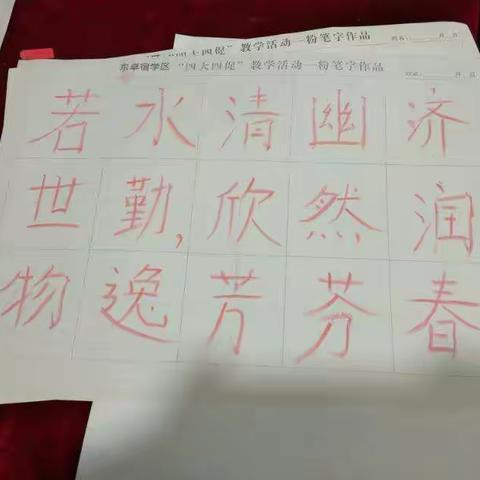 “四大四促”教学活动—粉笔字作品
东卓宿学区“四大四促”教学活动—粉笔字作品
若水清幽济
世勤,欣然润
物逸芳芬春